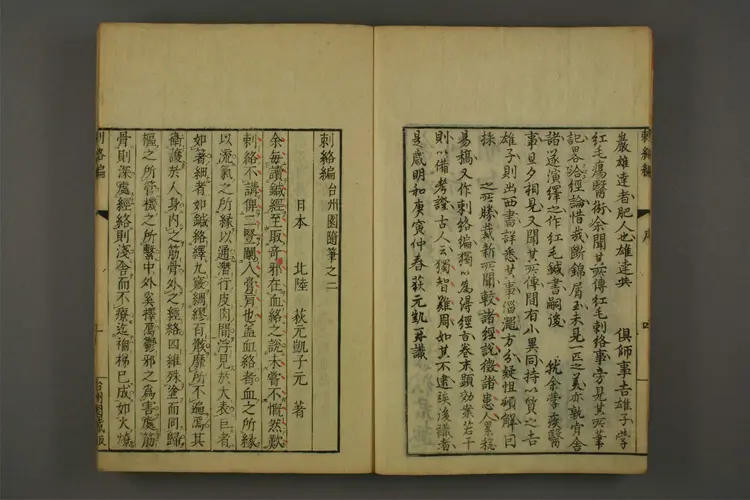 刺絡編
序
四
巖雄達者肥人也雄達與 俱師事吉雄子學
紅毛瘍醫術余聞其所傳紅毛刺絡事旁見其所筆
記畧洽經論惜哉斷錦屑玉未見一匹之美亦孰肯舍
諸遂演繹之作紅毛鍼書嗣後 就余學疾醫
事旦夕相見又聞其所傳聞有小異同持以質之吉
雄子則出西書詳悉其事淄澠方分疑怚頓解因
採 之所勝茂新所聞較諸經說徵諸患人累稔
易稿又作刺絡編獨以為得經旨卷末顯効案若干
則以備考證古人云獨智雖周如其不遠踐後識者
是歲明和庚寅仲春荻元凱再識
刺絡編台州園隨筆之二
日本 北陸 荻元凱子元 著
余每讀鍼經至取奇邪在血絡之說未嘗不慨然歎
刺絡不講俾二豎闖入膏肓也盖血絡者血之所緣
以流氣之所緣以通潛行皮肉間浮見於大表巨者
如箸細者如鍼絡繹九竅綢繆百骸靡所不遍焉其
衛護於人身內之筋骨外之經絡四維殊塗而同歸
樞之所管機之所繫中外奚擇焉鬱邪之為害處筋
骨則深處經絡則淺舍而不療迄稊稗已成如火燎
刺絡編
台州園藏版